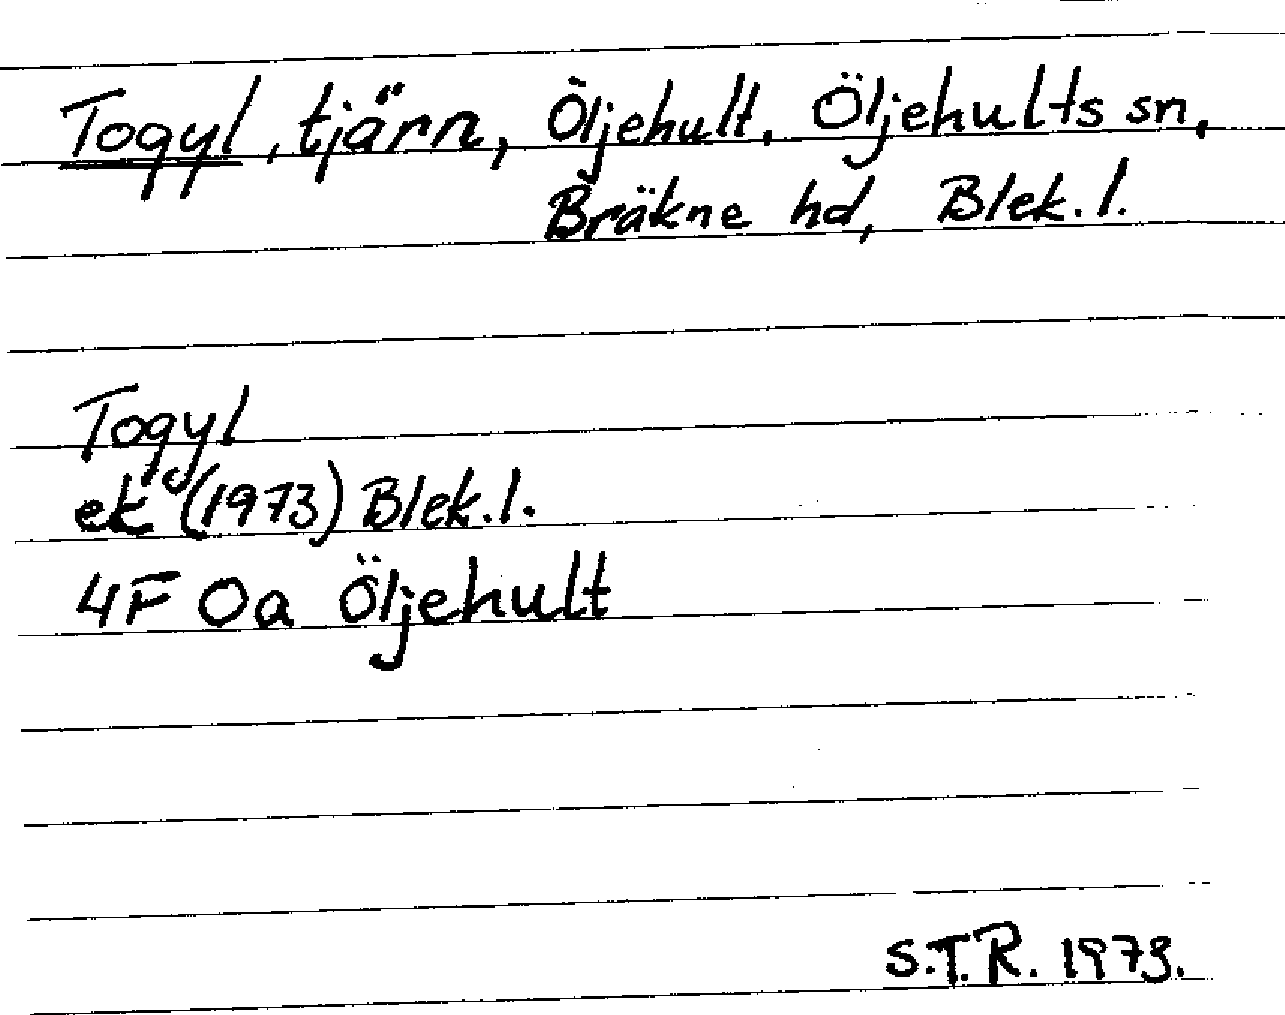 Togyl, tjärn, Öljehult, Öljehults sn,
Bräkne hd, Blek. l.
Togyl
ek (1973) Blek. l.
4F 0a Öljehult
S.T.R. 1973.